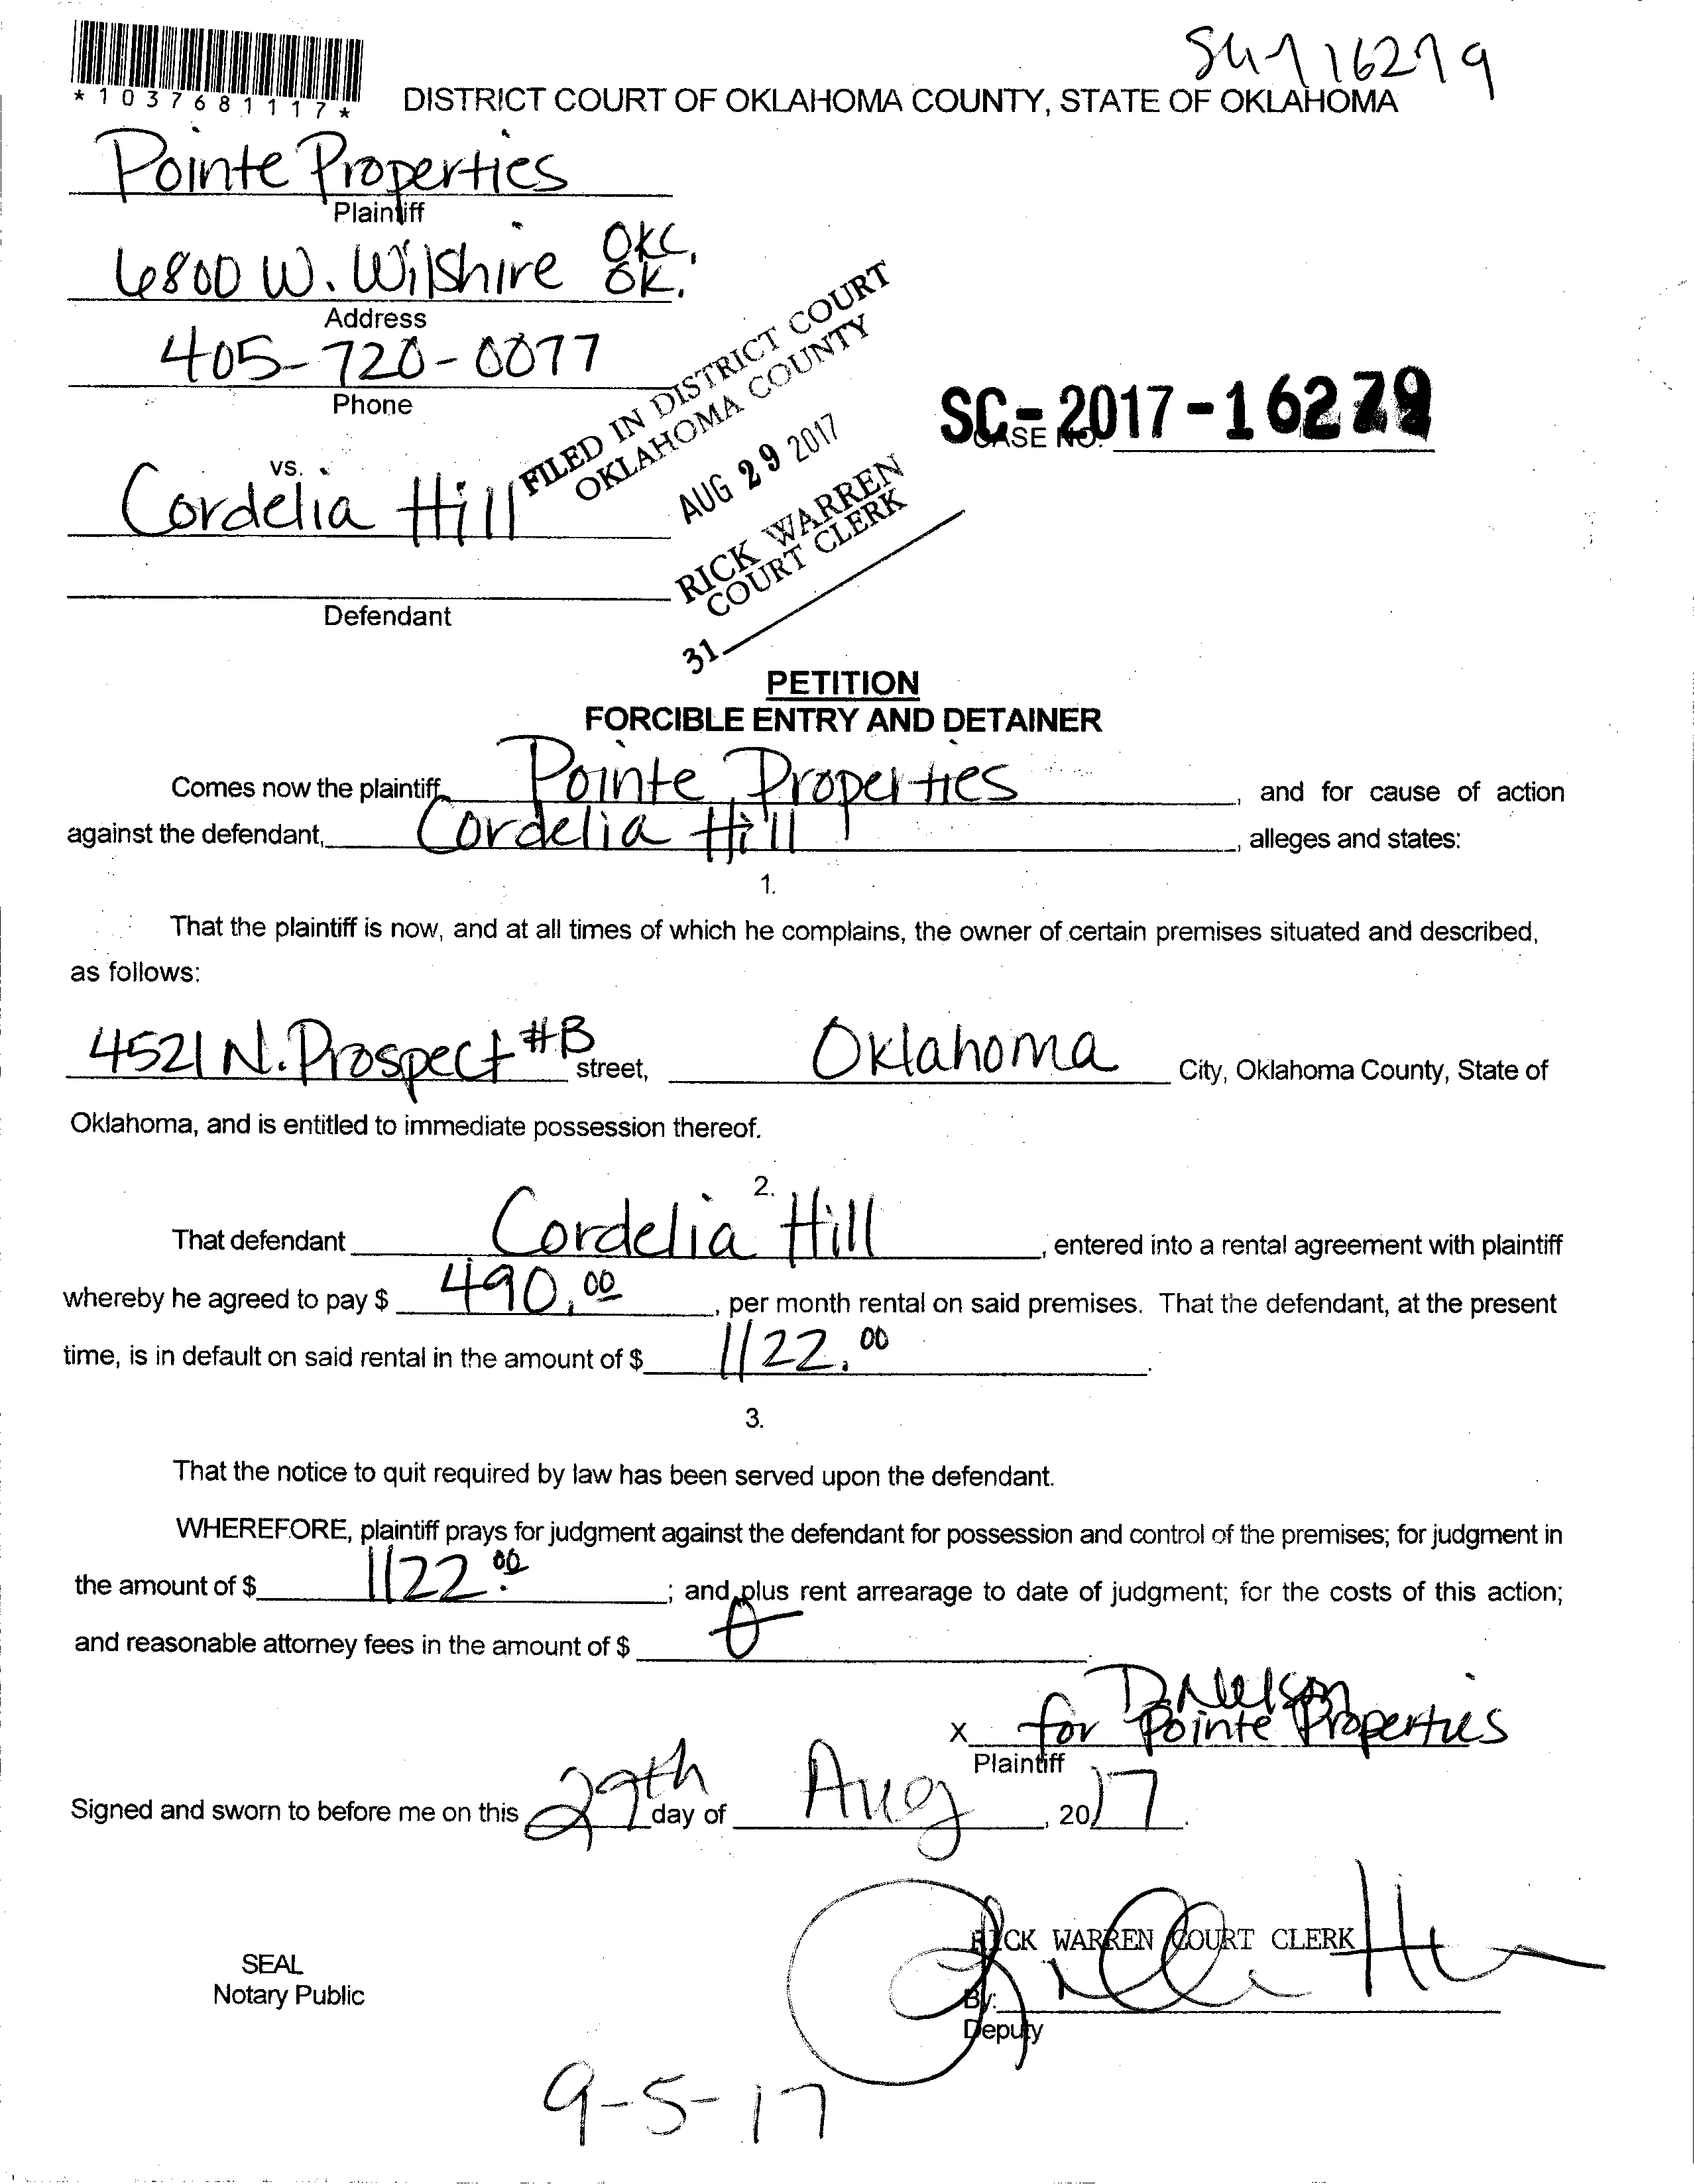 *1037681117*
DISTRICT COURT OF OKLAHOMA COUNTY, STATE OF OKLAHOMA
Pointe Properties
Plaintiff
6800 W. Wilshire OKC, OK.
Address
405-720-0077
Phone
FILED IN DISTRICT COURT
OKLAHOMA COUNTY
AUG 29 2017
RICK WARREN
COURT CLERK
31
SC-2017-16279
CASE NO.
vs.
Cordelia Hill
Defendant
PETITION
FORCIBLE ENTRY AND DETAINER
Comes now the plaintiff, Pointe Properties, and for cause of action
against the defendant, Cordelia Hill, alleges and states:
1.
That the plaintiff is now, and at all times of which he complains, the owner of certain premises situated and described,
as follows:
4521 N. Prospect #B street, Oklahoma City, Oklahoma County, State of
Oklahoma, and is entitled to immediate possession thereof.
2.
That defendant Cordelia Hill, entered into a rental agreement with plaintiff
whereby he agreed to pay $ 490.00, per month rental on said premises. That the defendant, at the present
time, is in default on said rental in the amount of $ 1122.00.
3.
That the notice to quit required by law has been served upon the defendant.
WHEREFORE, plaintiff prays for judgment against the defendant for possession and control of the premises; for judgment in
the amount of $ 1122.00; and, plus rent arrearage to date of judgment; for the costs of this action;
and reasonable attorney fees in the amount of $ 0.
D. Nelson
x for Pointe Properties
Plaintiff
Signed and sworn to before me on this 29th day of Aug, 2017.
RICK WARREN COURT CLERK
SEAL
Notary Public
By:
Deputy
9-5-17